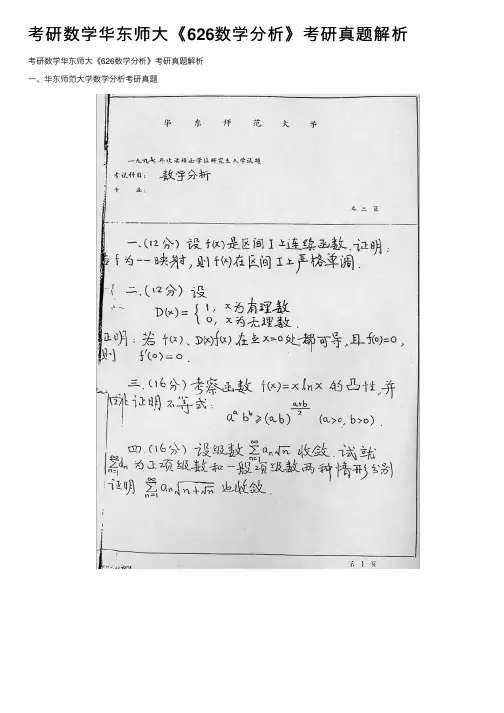 考研数学华东师大《626数学分析》考研真题解析
考研数学华东师大《626数学分析》考研真题解析
一、华东师范大学数学分析考研真题
华 东 师 范 大 学
一九九七年攻读硕士学位研究生入学试题
考试科目：数学分析
专 业：
共 三 页
一.(12分) 设 f(x)是区间 I 上连续函数.证明:
若 f 为一一映射,则 f(x)在区间 I 上严格单调.
二.(12分) 设
D(x) = { 1, x为有理数
0, x为无理数.
证明:若 f(x)、D(x)f(x)在点x=0处都可导,且 f(0)=0,
则 f'(0)=0.
三.(16分) 考察函数 f(x)=x ln x 的凸性,并
由此证明不等式:
a^a b^b ≥ (ab)^{\frac{a+b}{2}} (a>0, b>0).
四.(16分) 设级数 \sum_{n=1}^{∞} a_n√n 收敛.试就
\sum_{n=1}^{∞} a_n 为正项级数和一般项级数两种情形分别
证明 \sum_{n=1}^{∞} a_n\sqrt{n+\sqrt{n}} 也收敛.
第 1 页